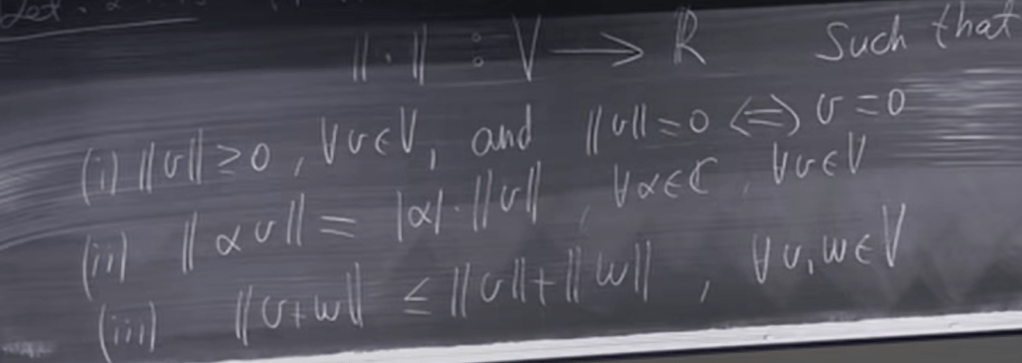 ‖·‖ : V ⟶ ℝ Such that
(i) ‖v‖ ≥ 0 , ∀v∈V, and ‖v‖ = 0 ⟺ v = 0
(ii) ‖αv‖ = |α|·‖v‖ , ∀α∈ℂ , ∀v∈V
(iii) ‖v+w‖ ≤ ‖v‖+‖w‖ , ∀v,w∈V